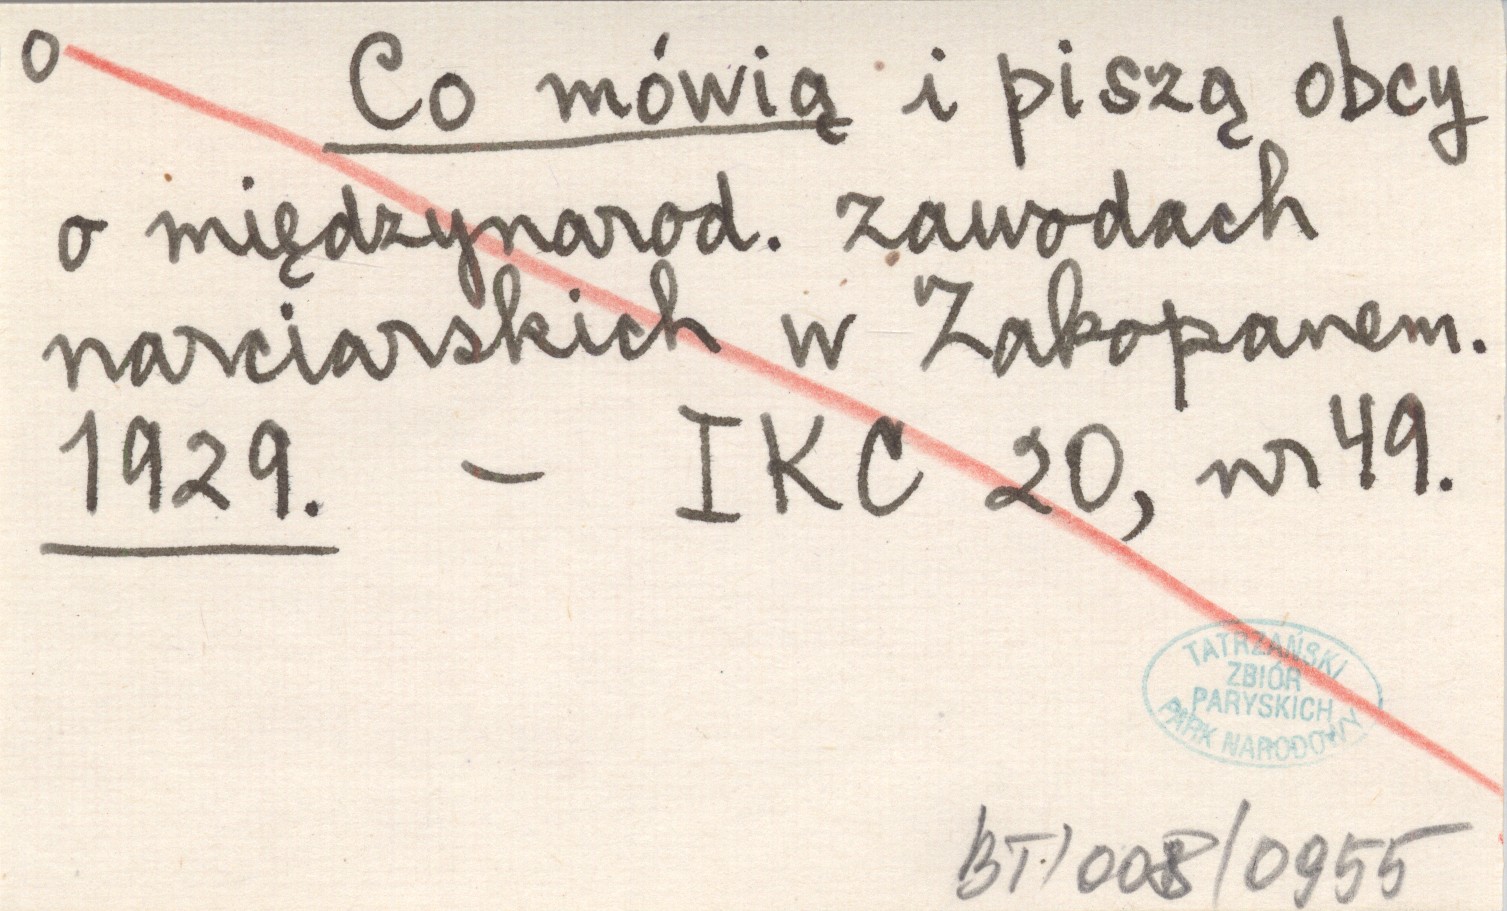 o Co mówią i piszą obcy
o międzynarod. zawodach
narciarskich w Zakopanem.
1929. – IKC 20, nr 49.
TATRZAŃSKI
ZBIÓR
PARYSKICH
PARK NARODOWY
BT/008/0955